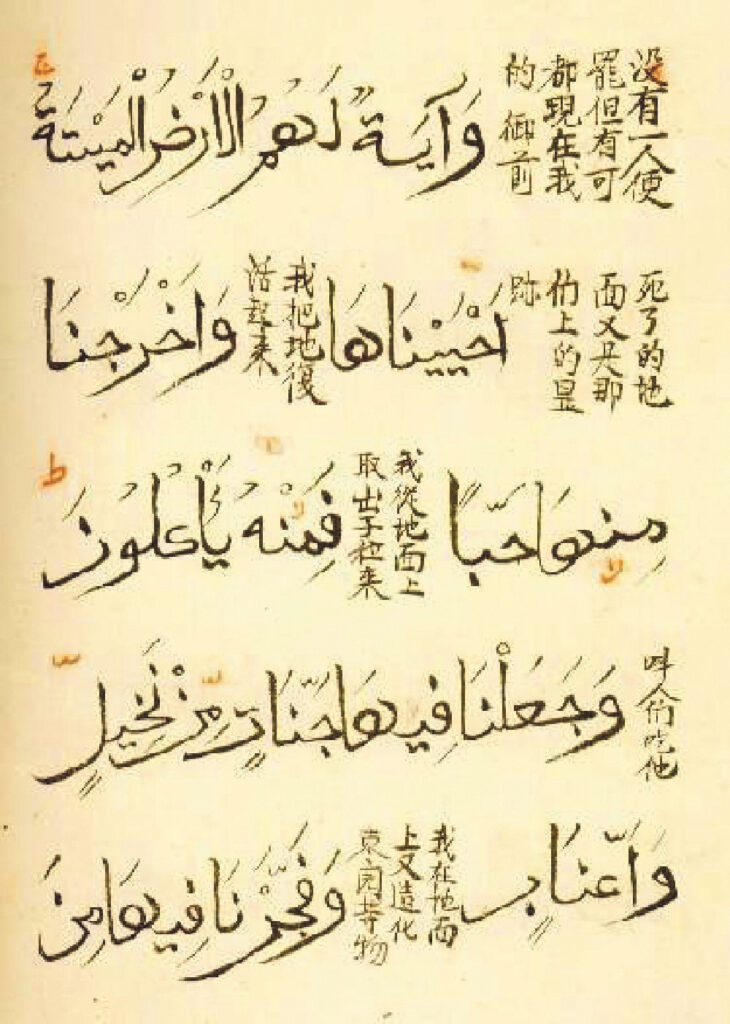 没有一人便
罷但有可
都現在我
的御前
وَآيَةٌ لَهُمُ الْأَرْضُ الْمَيْتَةُ
死了的地
面又是那
们上的显
跡
اَحْيَيْنَاهَا
我把地復
活起来
وَاَخْرَجْنَا
مِنْهَا حَبًّا
我從地面上
取出子粒来
فَمِنْهُ يَأْكُلُونَ
呌人们吃他
وَجَعَلْنَا فِيهَا جَنَّاتٍ مِّنْ نَخِيلٍ
وَاَعْنَابٍ
我在地面
上又造化
園等物
وَفَجَّرْنَا فِيهَا مِنَ